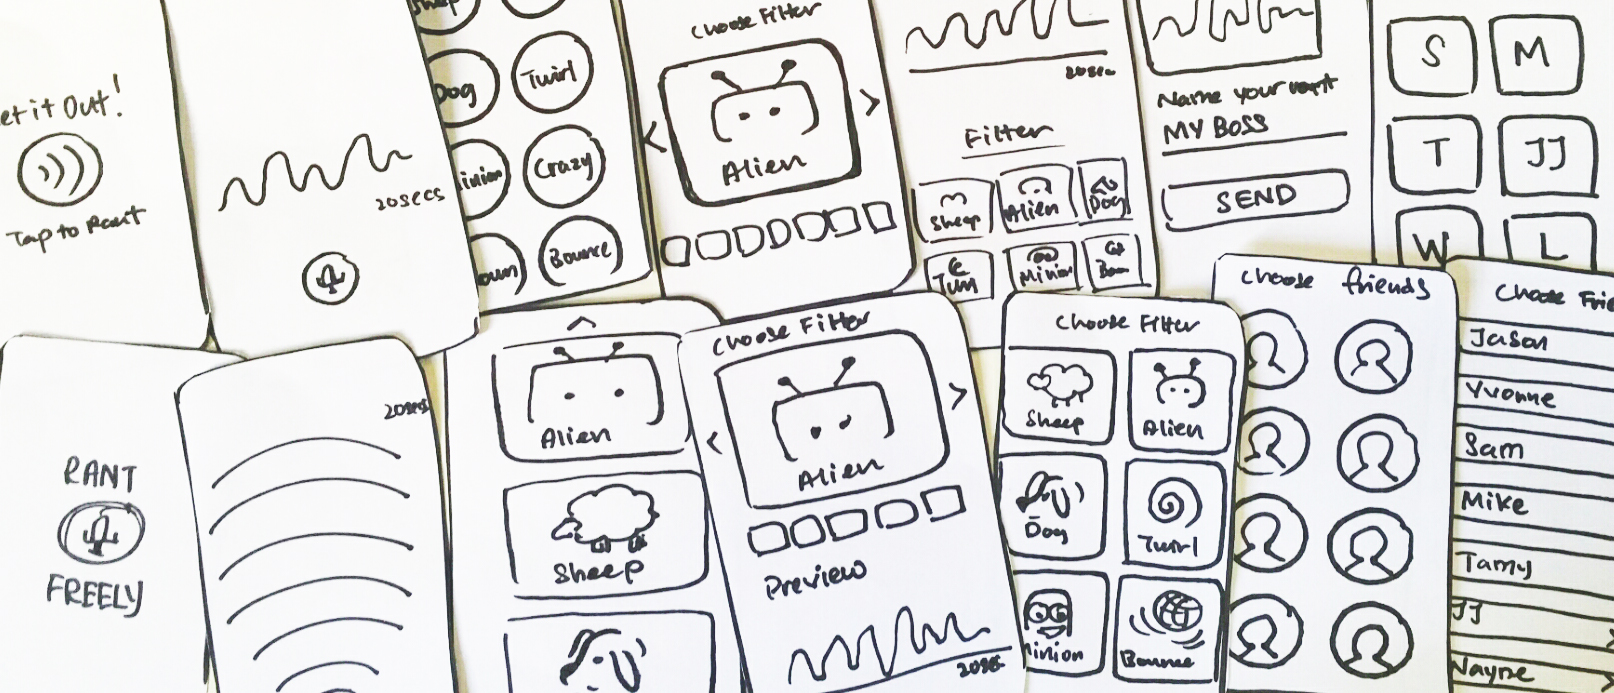 et it Out!
Tap to Rant
20secs
Dog
Twirl
inion
Crazy
oun
Bounce
Choose Filter
<
>
Alien
20sec
Filter
Sheep
Alien
Dog
Minion
Name your
MY BOSS
SEND
S
M
T
JJ
W
L
RANT
FREELY
20secs
Alien
Sheep
Choose Filter
<
>
Alien
Preview
20sec
Choose Filter
Sheep
Alien
Dog
Twirl
inion
Bounce
Choose friends
Choose Frie
Jason
Yvonne
Sam
Mike
Tamy
JJ
Nayne